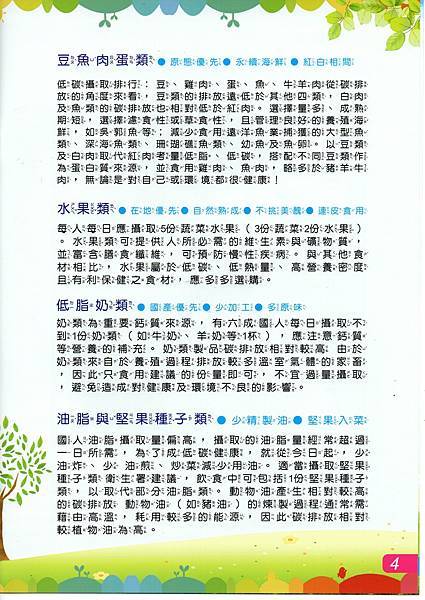 豆魚肉蛋類 ●原態優先●永續海鮮●紅白相間
低碳攝取排行：豆、雞肉、蛋、魚、牛羊肉從碳排
放的角度來看，豆類的排放遠低於其他四類，白肉
及魚類的排放也相對低於紅肉。選擇量多、成熟
期短，選擇濾食性或草食性，且管理良好的養殖海
鮮，如吳郭魚等；減少食用遠洋漁業捕獲的大型魚
類、深海魚類、珊瑚礁魚類、幼魚及魚卵。以豆類
及白肉取代紅肉考量低脂、低碳，搭配不同豆類作
為蛋白質來源，並食用雞肉、魚肉，略多於豬羊牛
肉，無論是對自己或環境都很健康！
水果類 ●在地優先●自然熟成●不挑美醜●連皮食用
每人每日應攝取5份蔬菜水果（3份蔬菜2份水果）
。水果類可提供人所必需的維生素與礦物質，
並富含膳食纖維，可預防慢性疾病。與其他食
材相比，水果屬於低碳、低熱量、高營養密度
且有利保健之食材，應多多選購。
低脂奶類 ●國產優先●少加工●多原味
奶類為重要鈣質來源，有六成國人每日攝取不
到1份奶類（如牛奶、羊奶等1杯），應注意鈣質
等營養的補充。奶類製品碳排放相對較高，由於
奶類來自於養殖過程排放較多溫室氣體的家畜
，因此只食用建議的份量即可，不宜過量攝取
，避免造成對健康及環境不良的影響。
油脂與堅果種子類 ●少精製油●堅果入菜
國人油脂攝取量偏高，攝取的油脂量經常超過
一日所需，為了成低碳健康，就從今日起，少
油炸、少油煎、炒菜減少用油。適當攝取堅果
種子類衛生署建議，飲食中可包括1份堅果種子
類，以取代部分油脂類。動物油產生相對較高
的碳排放，動物油（如豬油）的煉製過程通常需
藉由高溫，耗用較多的能源，因此碳排放相對
較植物油為高。
4